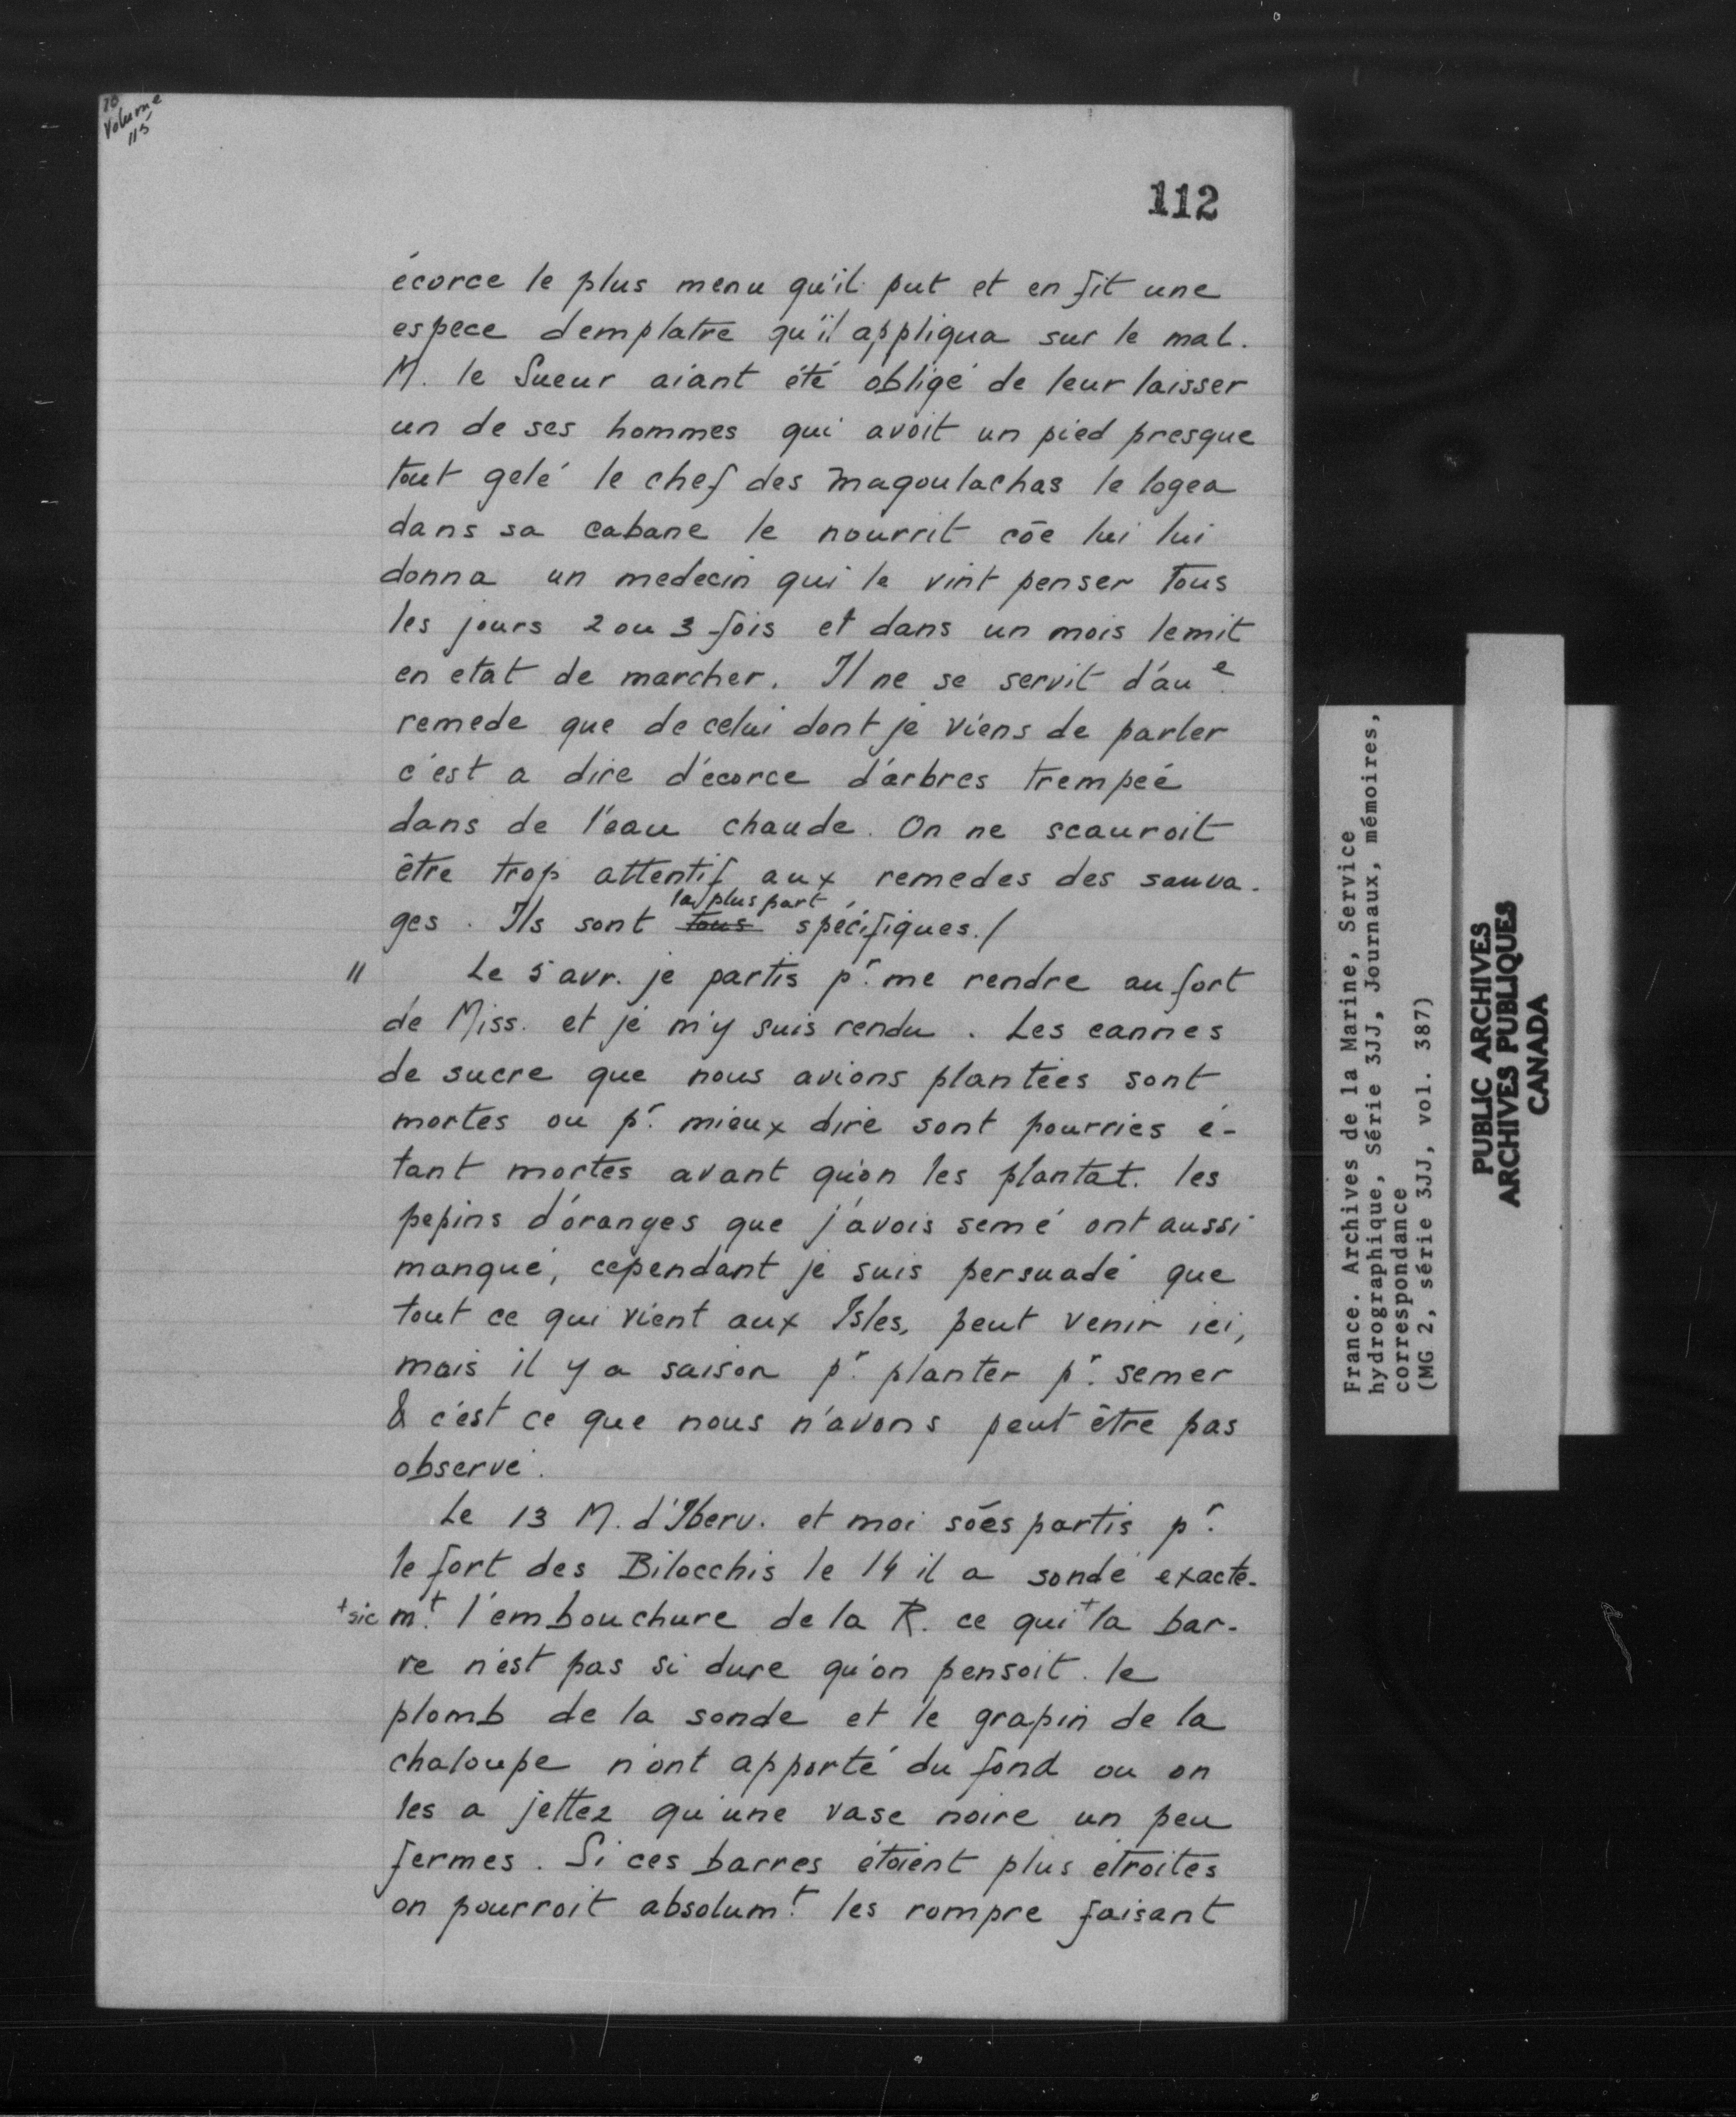 10
Volume
115
112
écorce le plus menu qu'il put et en fit une
espece demplatre qu'il appliqua sur le mal.
M. le Sueur aiant été obligé de leur laisser
un de ses hommes qui avoit un pied presque
tout gelé le chef des Magoulachas le logea
dans sa cabane le nourrit cōe lui lui
donna un medecin qui le vint penser tous
les jours 2 ou 3 fois et dans un mois le mit
en etat de marcher. Il ne se servit d'auᵉ
remede que de celui dont je viens de parler
c'est a dire d'écorce d'arbres trempeé
dans de l'eau chaude. On ne scauroit
être trop attentif aux remedes des sauva-
la plus part
ges. Ils sont tous spécifiques./
" Le 5 avr. je partis pʳ. me rendre au fort
de Miss. et je m'y suis rendu. Les cannes
de sucre que nous avions plantées sont
mortes ou pʳ. mieux dire sont pourries é-
tant mortes avant qu'on les plantat. les
pepins d'oranges que j'avois semé ont aussi
manqué, cependant je suis persuadé que
tout ce qui vient aux Isles, peut venir ici,
mais il y a saison pʳ. planter pʳ. semer
& c'est ce que nous n'avons peut être pas
observé.
Le 13 M. d'Iberv. et moi sōes partis pʳ.
le fort des Bilocchis le 14 il a sondé exacte-
+sic mᵗ. l'embouchure de la R. ce qui+ la bar-
re n'est pas si dure qu'on pensoit. le
plomb de la sonde et le grapin de la
chaloupe n'ont apporté du fond ou on
les a jettez qu'une vase noire un peu
fermes. Si ces barres étoient plus etroites
on pourroit absolumᵗ. les rompre faisant
France. Archives de la Marine, Service
hydrographique, Série 3JJ, Journaux, mémoires,
correspondance
(MG 2, série 3JJ, vol. 387)
PUBLIC ARCHIVES
ARCHIVES PUBLIQUES
CANADA